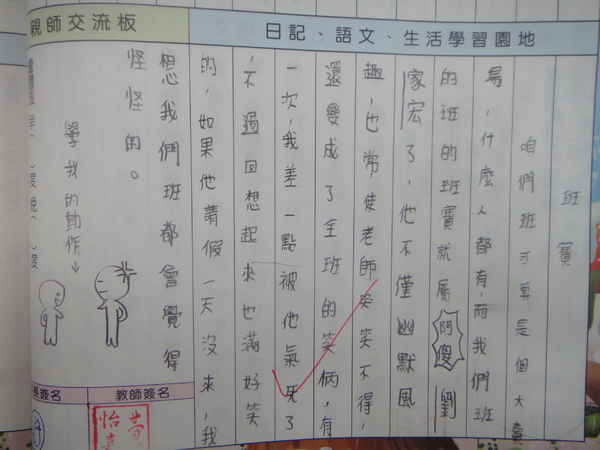 親師交流板
日記、語文、生活學習園地
班寶
咱們班可算是個大賣
場，什麼人都有，而我們班
的班的班寶就屬阿傻劉
家宏了，他不僅幽默風
趣，也常使老師哭笑不得，
還變成了全班的笑柄，有
一次，我差一點被他氣死了
，不過回想起來也滿好笑
的，如果他請假一天沒來，我
想我們班都會覺得
怪怪的。
學我的動作
教師簽名
簽名